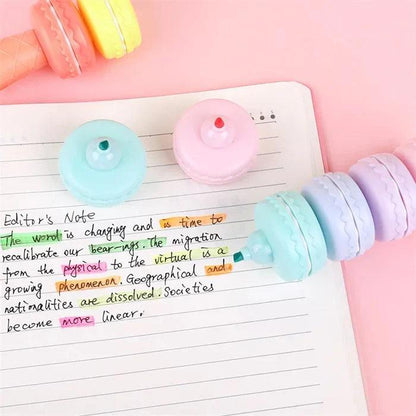 Editor's Note
The word is changing and is time to
recalibrate our bear-ings. The migration
from the physical to the virtual is a
growing phenomenon. Geographical and
nationalities are dissolved. Societies
become more linear.